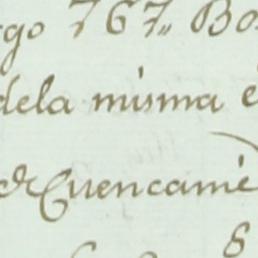 rgo 767,, Bo
dela misma e
de Cuencamè
8